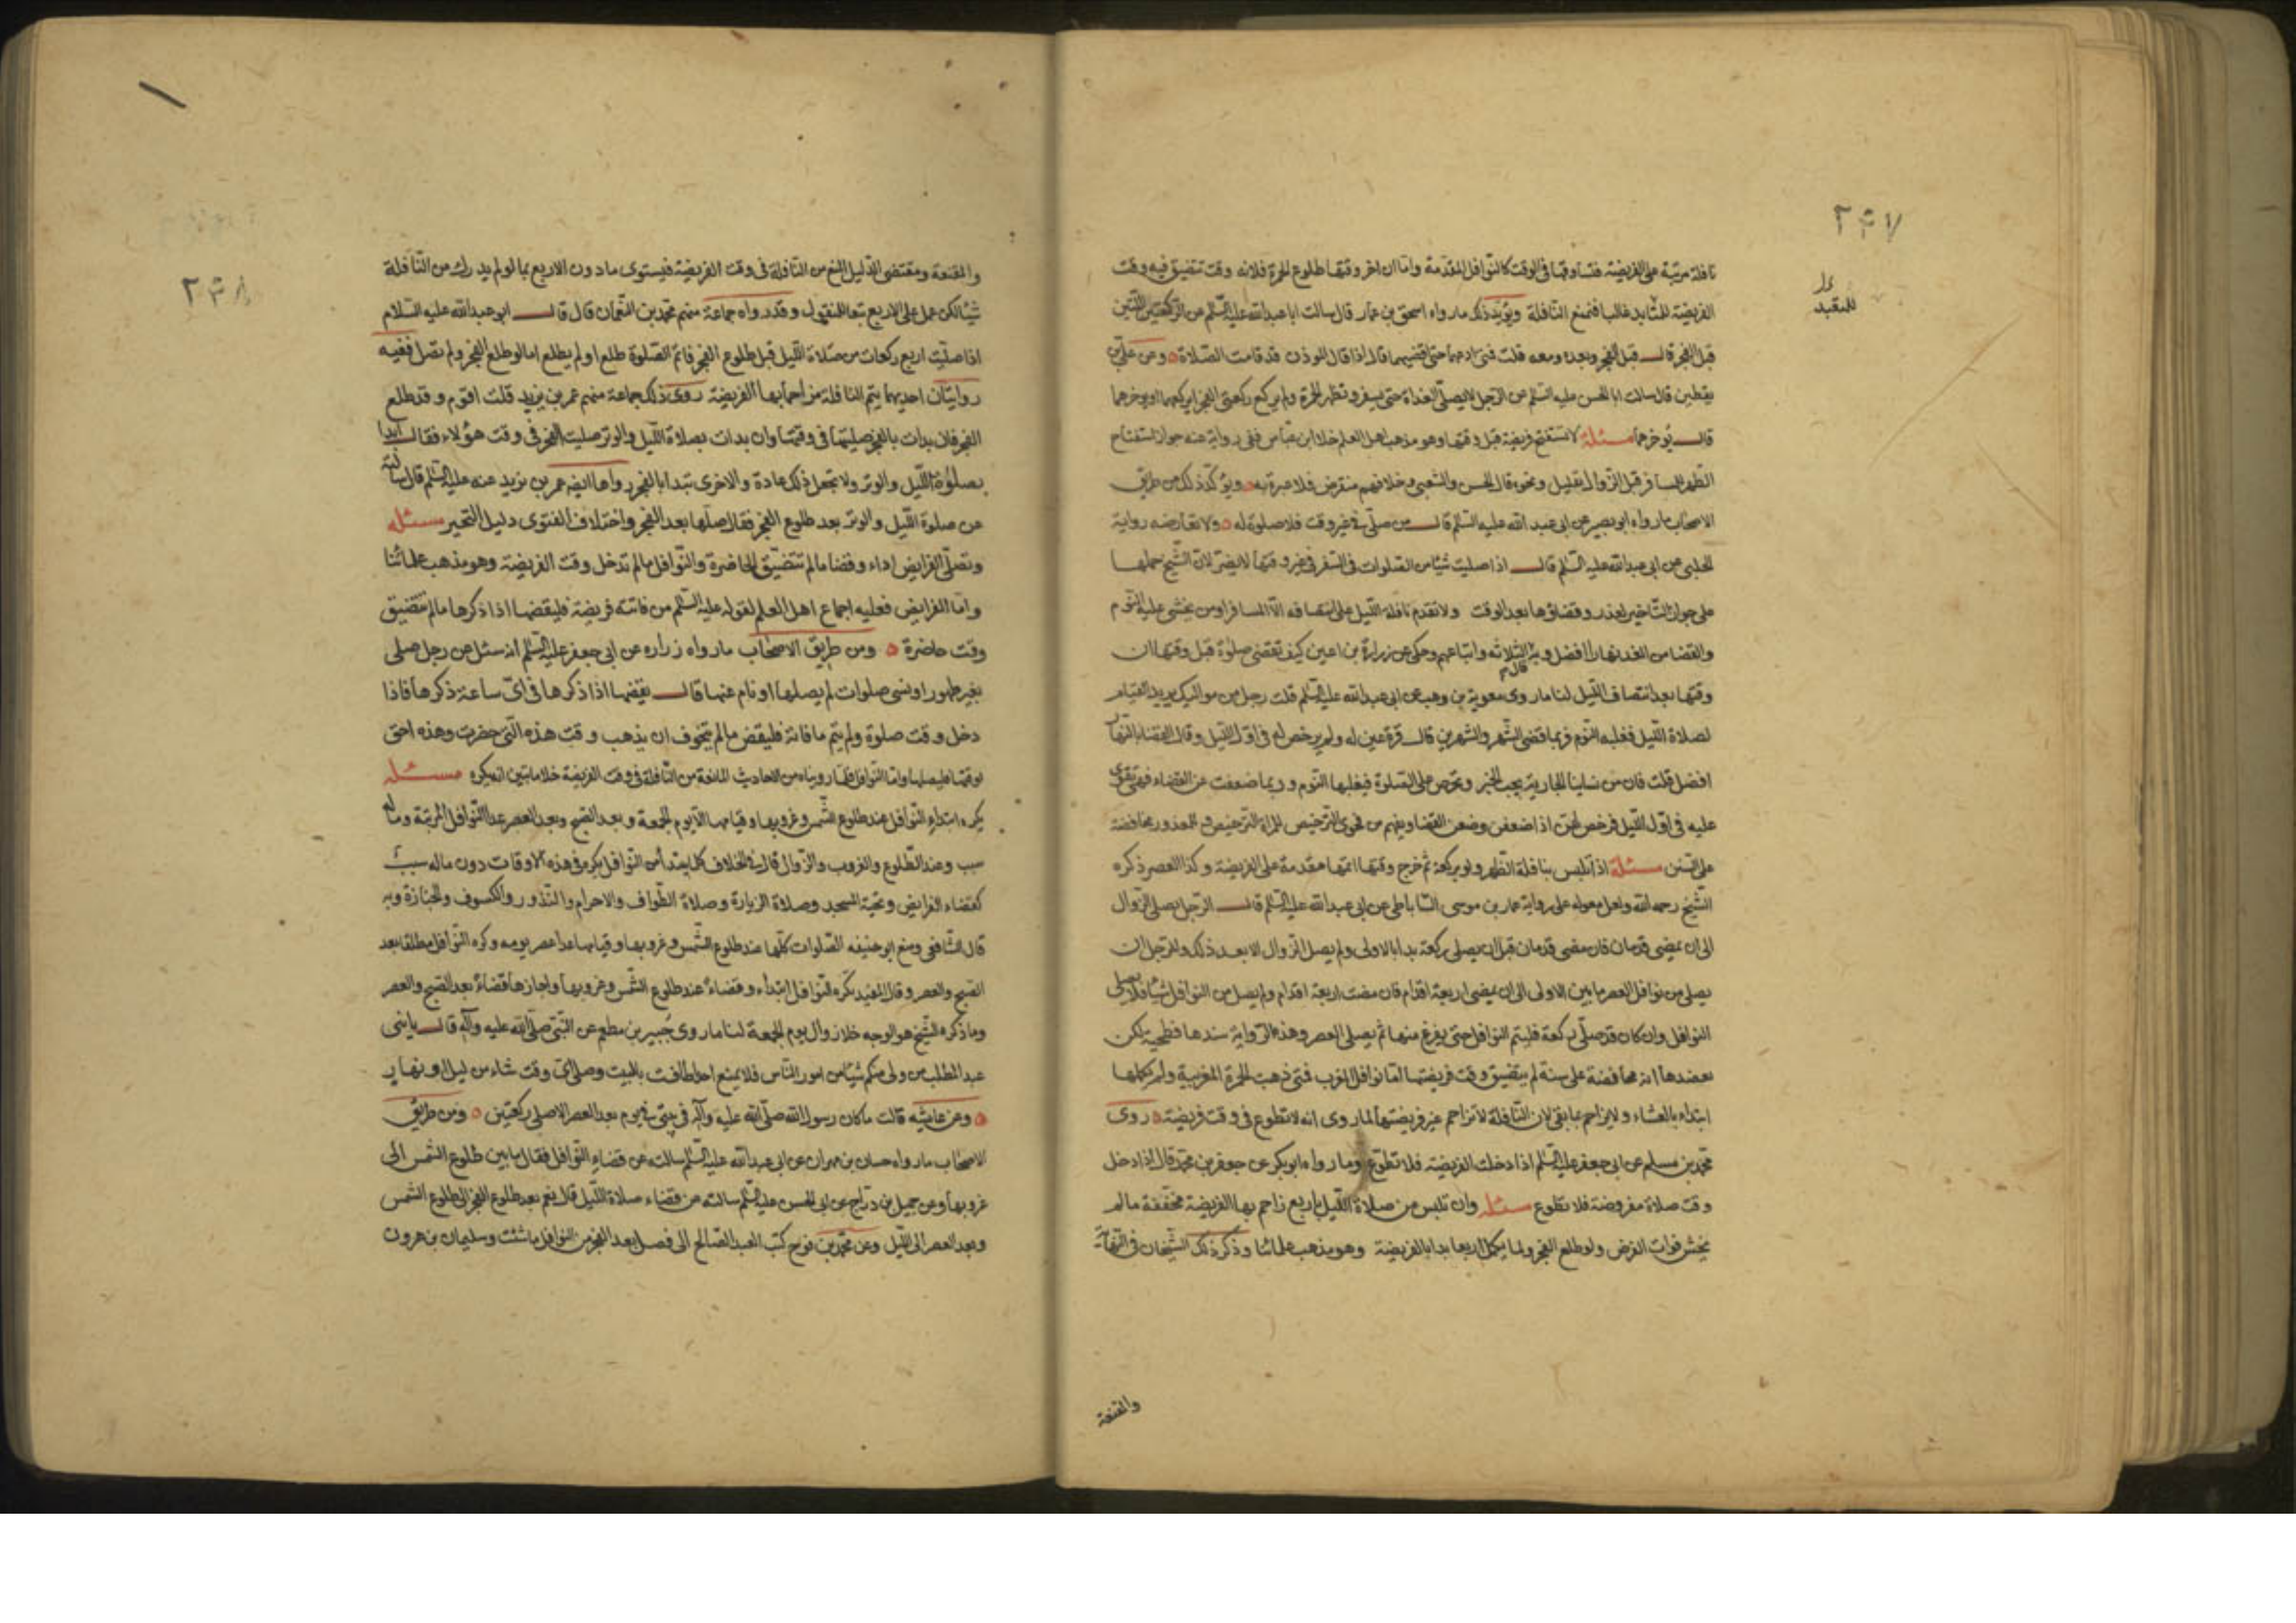 ٢٤٧
نافلة مرتبة على الفريضة فتساوقها في الوقت كالنوافل المتقدمة واما ان اخر وقتها طلوع الحمرة فلانه وقت تتضيق فيه وقت
الفريضة غالبا فتمنع النافلة ويؤيد ذلك ما رواه اسحق بن عمار قال سالت ابا عبد الله عليه السلم عن الركعتين اللتين
قبل الفجر قال قبل الفجر وبعده ومعه قلت فمتى ادعهما حتى اقضيهما قال اذا قال الموذن قد قامت الصلاة وعن علي بن
يقطين قال سالت ابا الحسن عليه السلم عن الرجل لا يصلي الغداة حتى يسفر وتظهر الحمرة ولم يركع ركعتي الفجر ايركعهما او يوخرهما
قال يوخرهما مسئلة لا تستفتح فريضة قبل وقتها وهو مذهب اهل العلم خلا ابن عباس ففي رواية عنه جواز استفتاح
الظهر للمسافر قبل الزوال بقليل ونحوه قال الحسن والشعبي وخلافهم منقرض فلا عبرة به ويؤكد ذلك من طريق
الاصحاب ما رواه ابو بصير عن ابي عبد الله عليه السلم قال من صلى في غير وقت فلا صلوة له ولا تعارضه رواية
الحلبي عن ابي عبد الله عليه السلم قال اذا صليت شيئا من الصلوات في السفر في غير وقتها لا يضر لان الشيخ حملها
على جواز التاخير لعذر وقضاؤها بعد الوقت ولا تقدم نافلة الليل على انتصافه الا المسافر او من يخشى عليه النوم
والقضا من الغد نهارا افضل وبه قال الثلاثة واتباعهم وحكى عن زرارة بن اعين كيف تقضى صلوة قبل وقتها ان
وقتها بعد انتصاف الليل لنا ما روى معوية بن وهب عن ابي عبد الله عليه السلم قلت رجل من مواليك يريد القيام
لصلاة الليل فغلبه النوم فربما قضى الشهر والشهرين قال قرة عين له ولم يرخص له في اول الليل وقال القضا بالنهار
افضل قلت فان من نسائنا الجارية يحب الخير وتحرص على الصلوة فيغلبها النوم وربما ضعفت عن القضاء فهي تقوى
عليه في اول الليل فرخص لهن اذا ضعفن وضيعن القضا ويفهم من فحوى الترخيص للمراة الترخيص في المعذور محافضة
على السنن مسئلة اذا تلبس بنافلة الظهر ولو بركعة ثم خرج وقتها اتمها مقدمة على الفريضة وكذا العصر ذكره
الشيخ رحمه الله ولعل معوله على رواية عمار بن موسى الساباطي عن ابي عبد الله عليه السلم قال الرجل يصلي الزوال
الى ان يمضي قدمان فان مضى قدمان قبل ان يصلي ركعة بدا بالاولى ولم يصل الزوال الا بعد ذلك وللرجل ان
يصلي من نوافل العصر ما بين الاولى الى ان يمضي اربعة اقدام فان مضت اربعة اقدام ولم يصل من النوافل شيئا فلا يصلي
النوافل وان كان قد صلى ركعة فليتم النوافل حتى يفرغ منها ثم يصلي العصر وهذه الرواية سندها فطحية لكن
يعضدها انه محافضة على سنة لم يتضيق وقت فريضتها اما نوافل المغرب فمتى ذهبت الحمرة المغربية ولم يكملها
ابتداء بالعشاء ولا يزاحم بما بقي لان النافلة لا تزاحم غير فريضتها لما روى انه لا تطوع في وقت فريضة روى
محمد بن مسلم عن ابي جعفر عليه السلم اذا دخلت الفريضة فلا تطوع وما رواه ابو بكر عن جعفر بن محمد قال اذا دخل
وقت صلاة مفروضة فلا تطوع مسئلة وان تلبس من صلاة الليل باربع زاحم بها الفريضة مخففة ما لم
يخش فوات الفرض ولو طلع الفجر ولما يكمل اربعا بدا بالفريضة وهو مذهب علمائنا وذكر ذلك الشيخان في النهاية
والمقنعة
٢٤٨
والمقنعة ومقتضى الدليل المنع من النافلة في وقت الفريضة فيستوى ما دون الاربع بما لو لم يدرك من النافلة
شيئا لكن عمل على الاربع تبعا للمنقول وقد رواه جماعة منهم محمد بن النعمان قال قال ابو عبد الله عليه السلام
اذا صليت اربع ركعات من صلاة الليل قبل طلوع الفجر فاتم الصلوة طلع او لم يطلع اما لو طلع الفجر ولم تصل ففيه
روايتان احديهما يتم النافلة مزاحما بها الفريضة روى ذلك جماعة منهم عمر بن يزيد قلت اقوم وقد طلع
الفجر فان بدات بالفجر صليتها في وقتها وان بدات بصلاة الليل والوتر صليت الفجر في وقت هؤلاء فقال ابدا
بصلوة الليل والوتر ولا تجعل ذلك عادة والاخرى تبدا بالفجر رواها ايضا عمر بن يزيد عنه عليه السلم قال سالته
عن صلوة الليل والوتر بعد طلوع الفجر فقال صلها بعد الفجر واختلاف الفتوى دليل التخير مسئله
وتصلى الفرايض اداء وقضا ما لم تتضيق الحاضرة والنوافل ما لم تدخل وقت الفريضة وهو مذهب علمائنا
واما الفرايض فعليه اجماع اهل العلم لقوله عليه السلم من فاتته فريضة فليقضها اذا ذكرها ما لم تتضيق
وقت حاضرة ومن طريق الاصحاب ما رواه زراره عن ابي جعفر عليه السلم انه سئل عن رجل صلى
بغير طهور او نسى صلوات لم يصلها او نام عنها قال يقضها اذا ذكرها في اي ساعة ذكرها فاذا
دخل وقت صلوة ولم يتم ما فاته فليقض ما لم يتخوف ان يذهب وقت هذه التي حضرت وهذه احق
بوقتها فليصلها واما النوافل فلما رويناه من الاحاديث المانعة من النافلة في وقت الفريضة مسئله
يكره ابتداء النوافل عند طلوع الشمس وغروبها وقيامها الا يوم الجمعة وبعد الصبح وبعد العصر عدا النوافل المرتبة وما له
سبب وعند الطلوع والغروب والزوال قال في الخلاف كلما يبتدأ من النوافل يكره في هذه الاوقات دون ماله سبب
كقضاء الفرايض وتحية المسجد وصلاة الزيارة وصلاة الطواف والاحرام والنذور والكسوف والجنازة وبه
قال الشافعي ومنع ابو حنيفه الصلوات كلها عند طلوع الشمس وغروبها وقيامها عدا عصر يومه وكره النوافل مطلقا بعد
الصبح والعصر وقال المفيد تكره النوافل ابتداء وقضاء عند طلوع الشمس وغروبها واجازها قضاء بعد الصبح والعصر
وما ذكره الشيخ هو الوجه خلا زوال يوم الجمعة لنا ما روى جبير بن مطعم عن النبي صلى الله عليه وآله قال يا بني
عبد المطلب من ولى منكم شيئا من امور الناس فلا يمنع احدا طافت بالبيت وصلى اى وقت شاء من ليل او نهار
وعن عايشه قالت ما كان رسول الله صلى الله عليه وآله في بيتي في يوم بعد العصر الا صلى ركعتين ومن طريق
الاصحاب ما رواه حسان بن مهران عن ابي عبد الله عليه السلم سالته عن قضاء النوافل فقال ما بين طلوع الشمس الى
غروبها وعن جميل بن دراج عن ابي الحسن عليه السلم سالته عن قضاء صلاة الليل قال نعم بعد طلوع الفجر الى طلوع الشمس
وبعد العصر الى الليل وعن محمد بن فرج كتب العبد الصالح الى فصل بعد الفجر من النوافل ما شئت وسليمان بن هرون